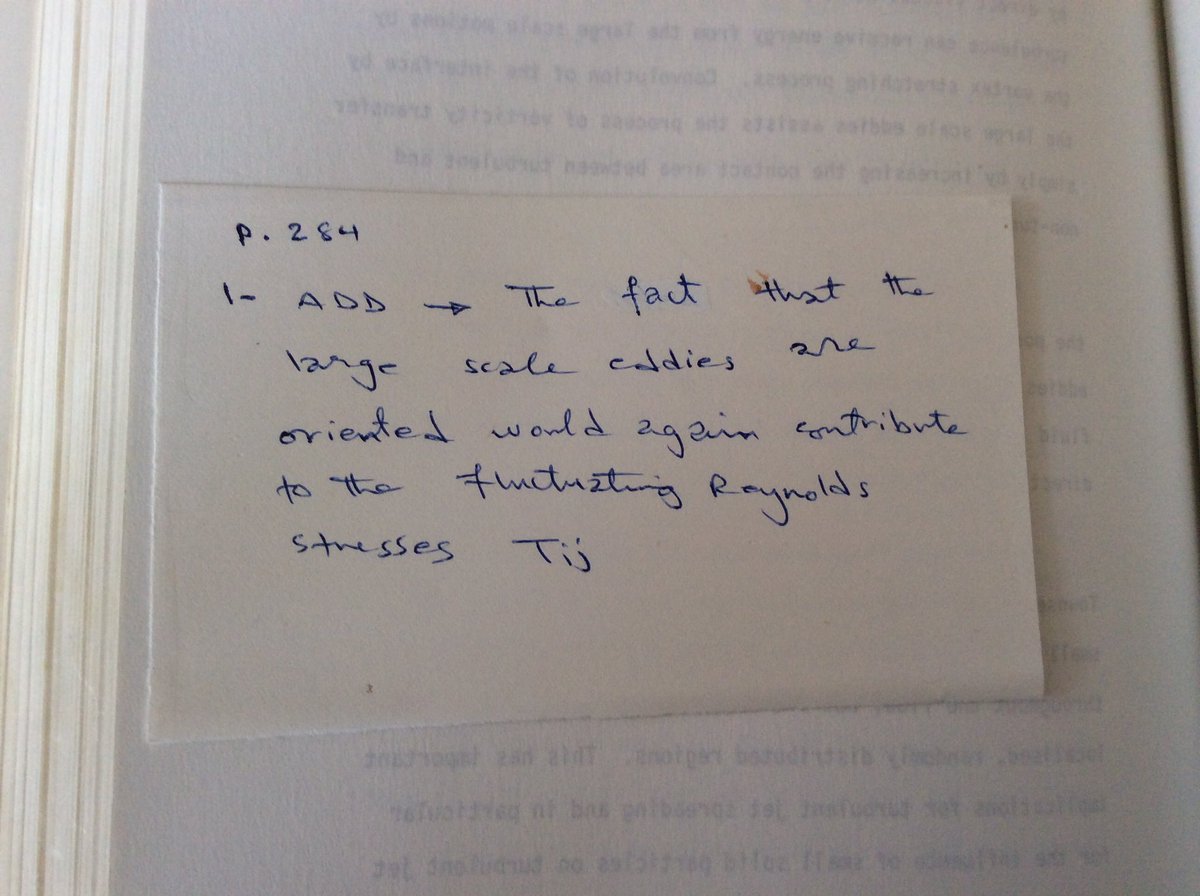 turbulence can receive energy from the large scale motions by
the vortex stretching process. Convolution of the interface by
the large scale eddies assists the process of vorticity transfer
simply by increasing the contact area between turbulent and
P. 284
1- ADD → The fact that the
large scale eddies are
oriented would again contribute
to the fluctuating Reynolds
stresses Tij
the
eddies
fluid
direct
small
throughout the flow
localised, randomly distributed regions. This has important
implications for turbulent jet spreading and in particular
for the influence of small solid particles on turbulent jet